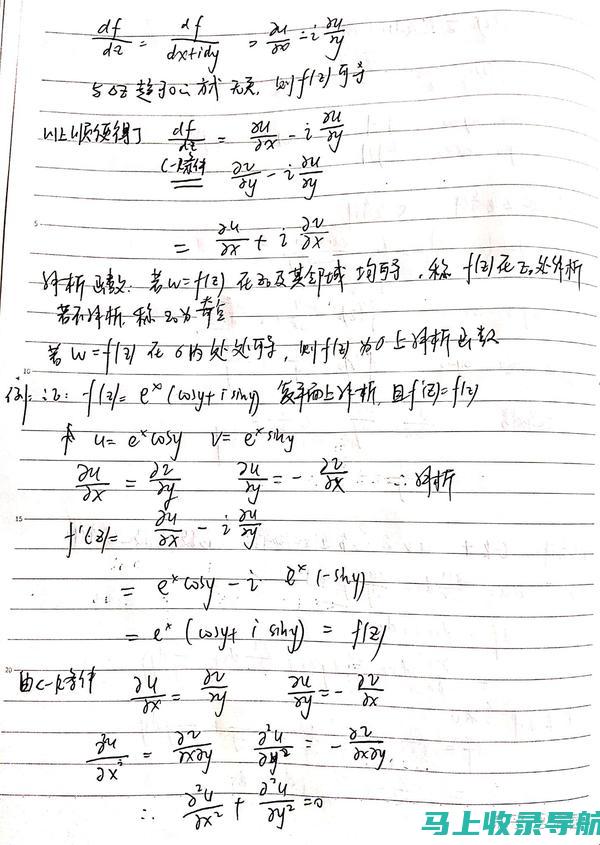 df/dz = df/(dx+idy) = ∂u/∂x - i ∂u/∂y
与Δz趋于0的方式无关, 则f(z)可导
以上顺便得了 df/dz = ∂u/∂x - i ∂u/∂y
C-R条件 ∂v/∂y - i ∂u/∂y
5
= ∂u/∂x + i ∂v/∂x
解析函数: 若w=f(z) 在z₀及其邻域均可导, 称 f(z)在z₀处解析
若不解析, 称z₀为奇点
若 w=f(z) 在σ内处处可导, 则f(z)为σ上解析函数
10
例: 证: f(z)= eˣ(cosy+isiny) 复平面上解析, 且f'(z)=f(z)
u= eˣcosy v= eˣsiny
∂u/∂x = ∂v/∂y ∂u/∂y = - ∂v/∂x ∴解析
15
f'(z)= ∂u/∂x - i ∂u/∂y
= eˣcosy - i eˣ(-siny)
= eˣ(cosy+ i siny) = f(z)
20
由C-R条件 ∂u/∂x = ∂v/∂y ∂u/∂y = - ∂v/∂x
∂²u/∂x² = ∂v/∂x∂y ∂²u/∂y² = - ∂v/∂x∂y.
∴ ∂²u/∂x² + ∂²u/∂y² =0
马上收录导航